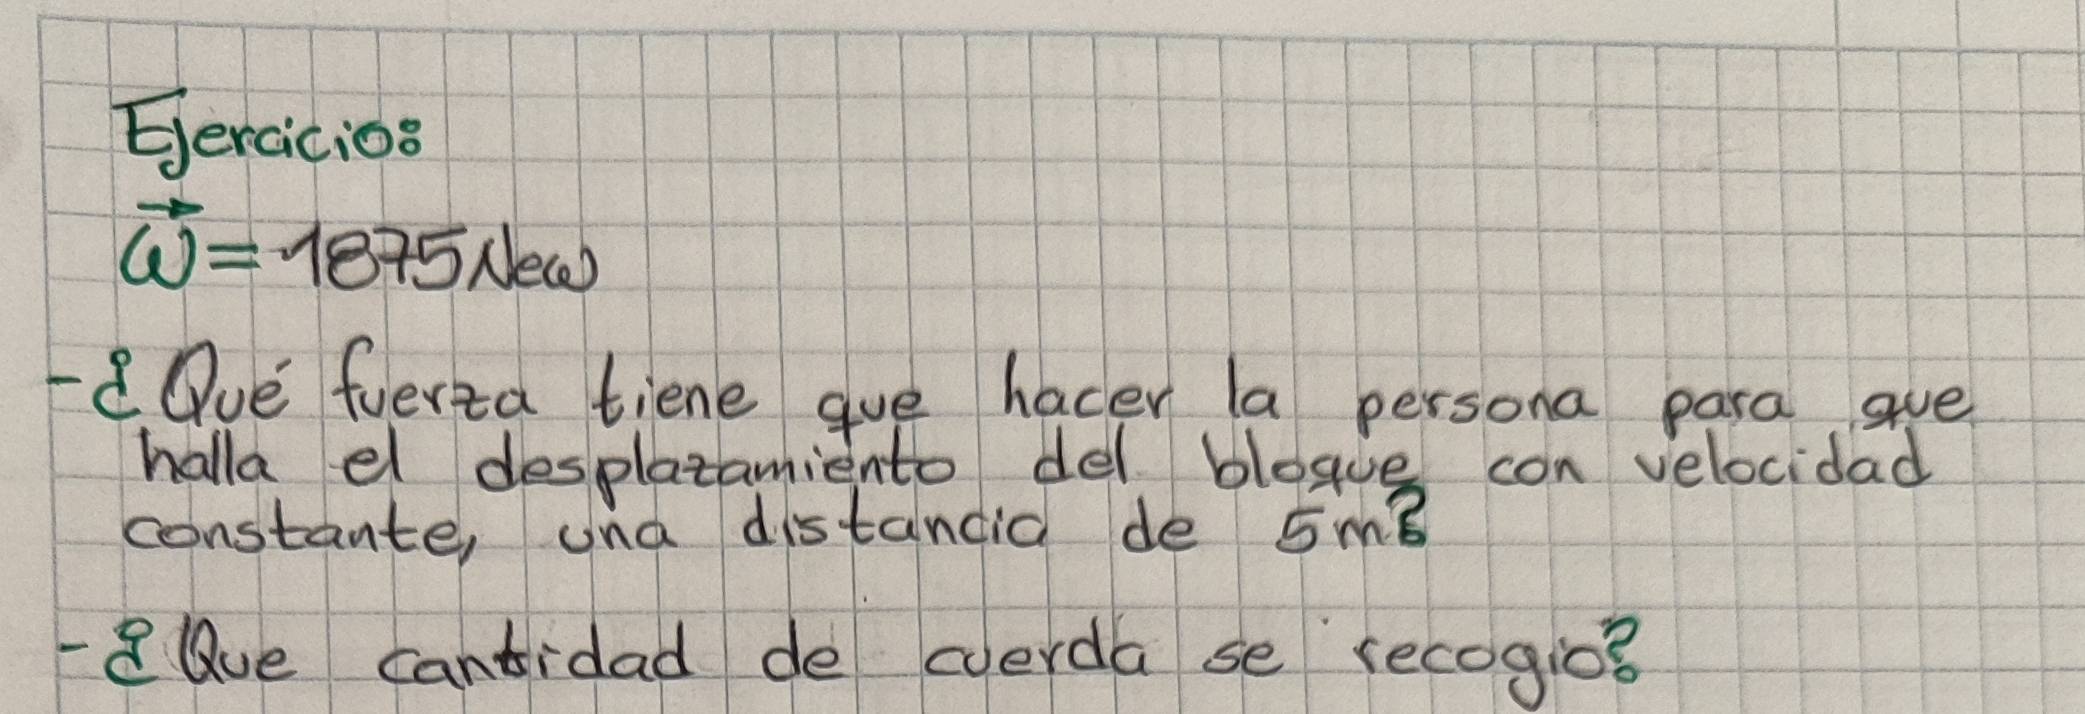 Ejercicio:
w = 1875 New
- ¿Qué fuerza tiene que hacer la persona para que
halla el desplazamiento del bloque con velocidad
constante, una distancia de 5m?
- ¿Que cantidad de cuerda se recogio?